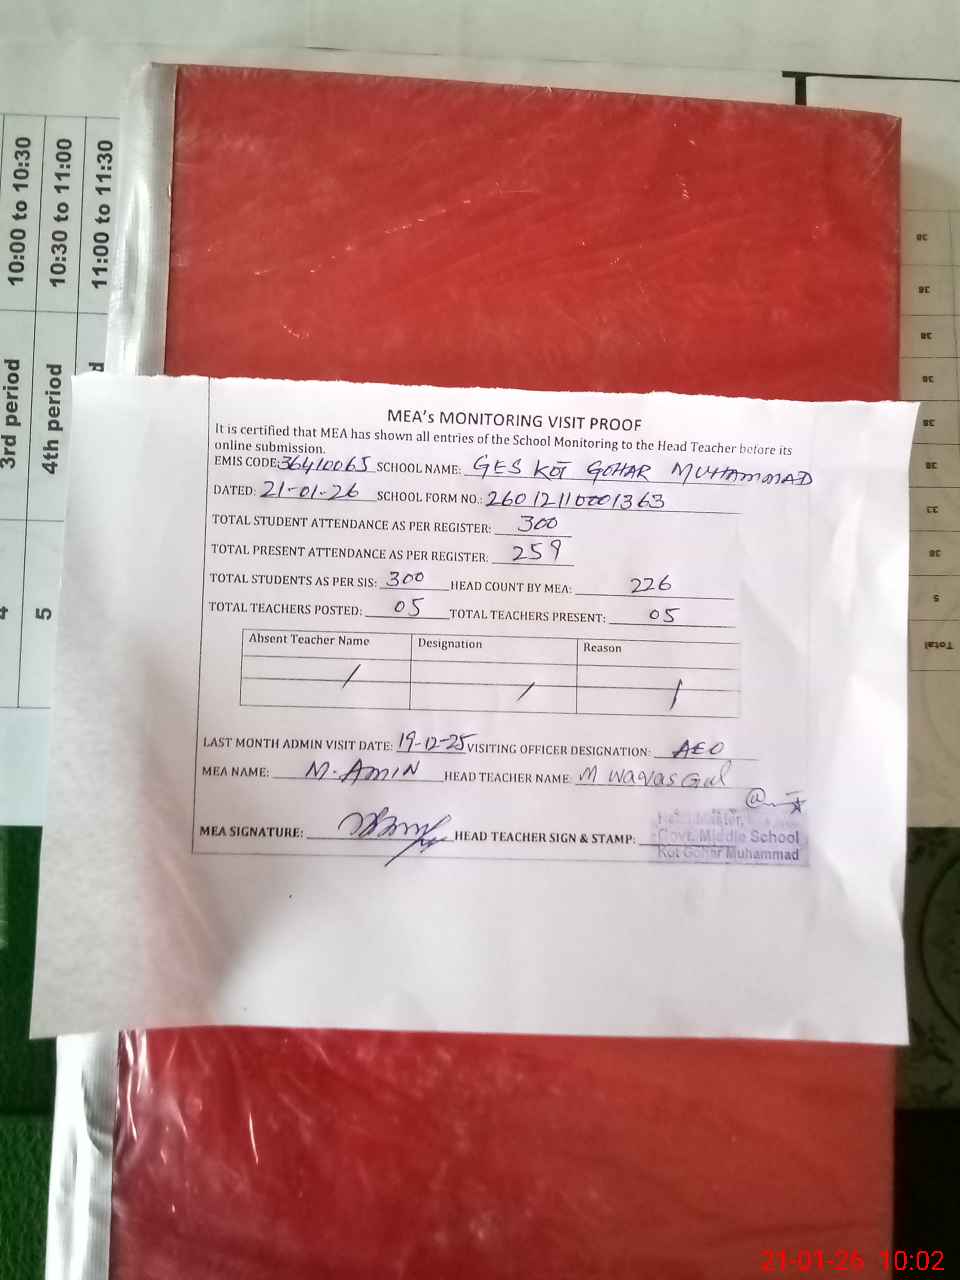 10:00 to 10:30
10:30 to 11:00
11:00 to 11:30
3rd period
4th period
d
4
5
38
38
38
38
38
38
33
38
5
Total
MEA's MONITORING VISIT PROOF
It is certified that MEA has shown all entries of the School Monitoring to the Head Teacher before its
online submission.
EMIS CODE: 36410065 SCHOOL NAME: GES KOT GOHAR MUHAMMAD
DATED: 21-01-26 SCHOOL FORM NO.: 26012110001363
TOTAL STUDENT ATTENDANCE AS PER REGISTER: 300
TOTAL PRESENT ATTENDANCE AS PER REGISTER: 259
TOTAL STUDENTS AS PER SIS: 300 HEAD COUNT BY MEA: 226
TOTAL TEACHERS POSTED: 05 TOTAL TEACHERS PRESENT: 05
Absent Teacher Name Designation Reason
/ / /
LAST MONTH ADMIN VISIT DATE: 19-12-25 VISITING OFFICER DESIGNATION: AEO
MEA NAME: M. AMIN HEAD TEACHER NAME: M Waqas Gul
MEA SIGNATURE: HEAD TEACHER SIGN & STAMP:
Govt. Middle School
Kot Gohar Muhammad
21-01-26 10:02